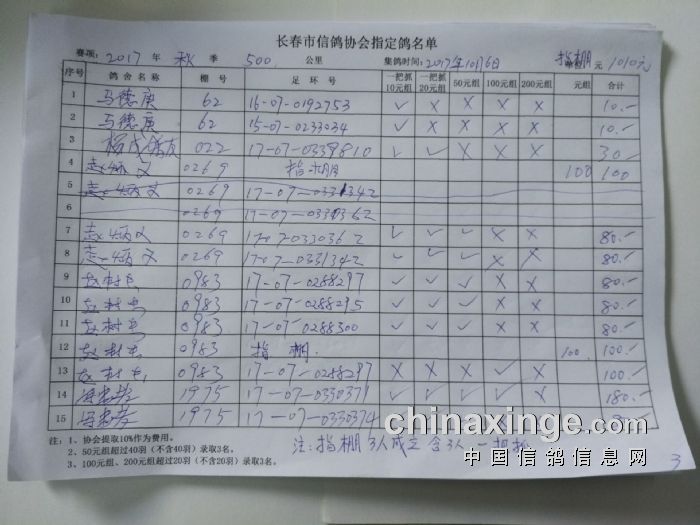 长春市信鸽协会指定鸽名单
赛项：2017 年 秋 季 500 公里 集鸽时间：2017年10月6日 指棚 元 1010元
序号 鸽舍名称 棚号 足环号 一把抓10元组 一把抓20元组 50元组 100元组 200元组 元组 合计
1 马德庚 62 16-07-0192753 ✓ X X X X 10.-
2 马德庚 62 15-07-0233034 ✓ X X X X 10.-
3 022 17-07-0339810 ✓ ✓ X X X 30-
4 0269 指棚 100 100
5 0269 17-07-0331342
6 0269 17-07-0330362
7 0269 17-07-0330362 ✓ ✓ ✓ X X 80.-
8 0269 17-07-0331342 ✓ ✓ ✓ X X 80.-
9 赵树 0983 17-07-0288297 ✓ ✓ ✓ X X 80.-
10 赵树 0983 17-07-0288295 ✓ ✓ ✓ X X 80.-
11 赵树 0983 17-07-0288300 ✓ ✓ ✓ X X 80.-
12 赵树 0983 指棚. 100 100.-
13 赵树 0983 17-07-0288297 X X X ✓ X 100.-
14 1975 17-07-0330371 ✓ ✓ ✓ ✓ X 180.-
15 1975 17-07-0330374
注：1、协会提取10%作为费用。
2、50元组超过40羽（不含40羽）录取3名。
3、100元组、200元组超过20羽（不含20羽）录取3名。
注:指棚 3人成立 含3人 一把抓
chinaxinge.com
中国信鸽信息网
3